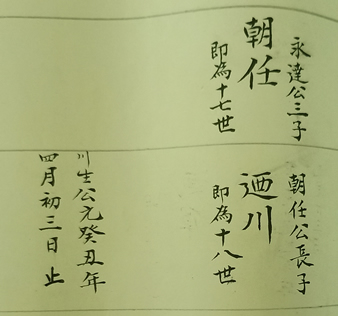 永達公三子
朝任
即為十七世
朝任公長子
迺川
即為十八世
川生公元癸丑年
四月初三日止